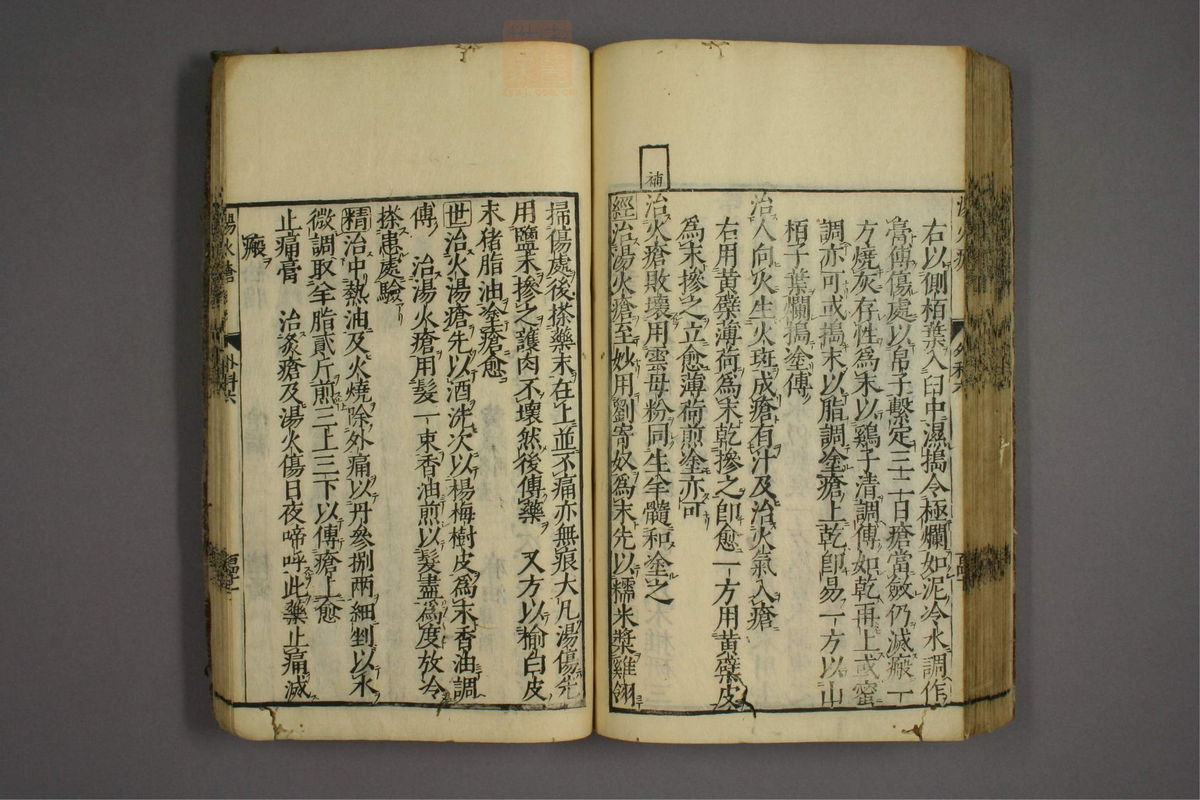 右以側栢葉入臼中濕搗令極爛如泥冷水調作
膏傅傷處以帛子繫定三二日瘡當斂仍滅瘢一
方燒灰存性為末以鷄子清調傅如乾再上或蜜
調亦可或搗末以脂調塗瘡上乾即易一方以山
栢子葉爛搗塗傅
治人向火生火斑成瘡有汁及治火氣入瘡
右用黃檗薄荷為末乾摻之即愈一方用黃檗皮
為末摻之立愈薄荷煎塗亦可
補
治火瘡敗壞用雲母粉同生羊髓和塗之
經治湯火瘡至妙用劉寄奴為末先以糯米漿雞翎
掃傷處後搽藥末在上並不痛亦無痕大凡湯傷先
用鹽末摻之護肉不壞然後傅藥 又方以榆白皮
末猪脂油塗瘡愈
世治火湯瘡先以酒洗次以楊梅樹皮為末香油調
傅 治湯火瘡用髮一束香油煎以髮盡為度放冷
搽患處驗
精治中熱油及火燒除外痛以丹參捌兩細剉以水
微調取羊脂貳斤煎三上三下以傅瘡上愈
止痛膏 治灸瘡及湯火傷日夜啼呼此藥止痛滅
瘢
湯火瘡 外科六